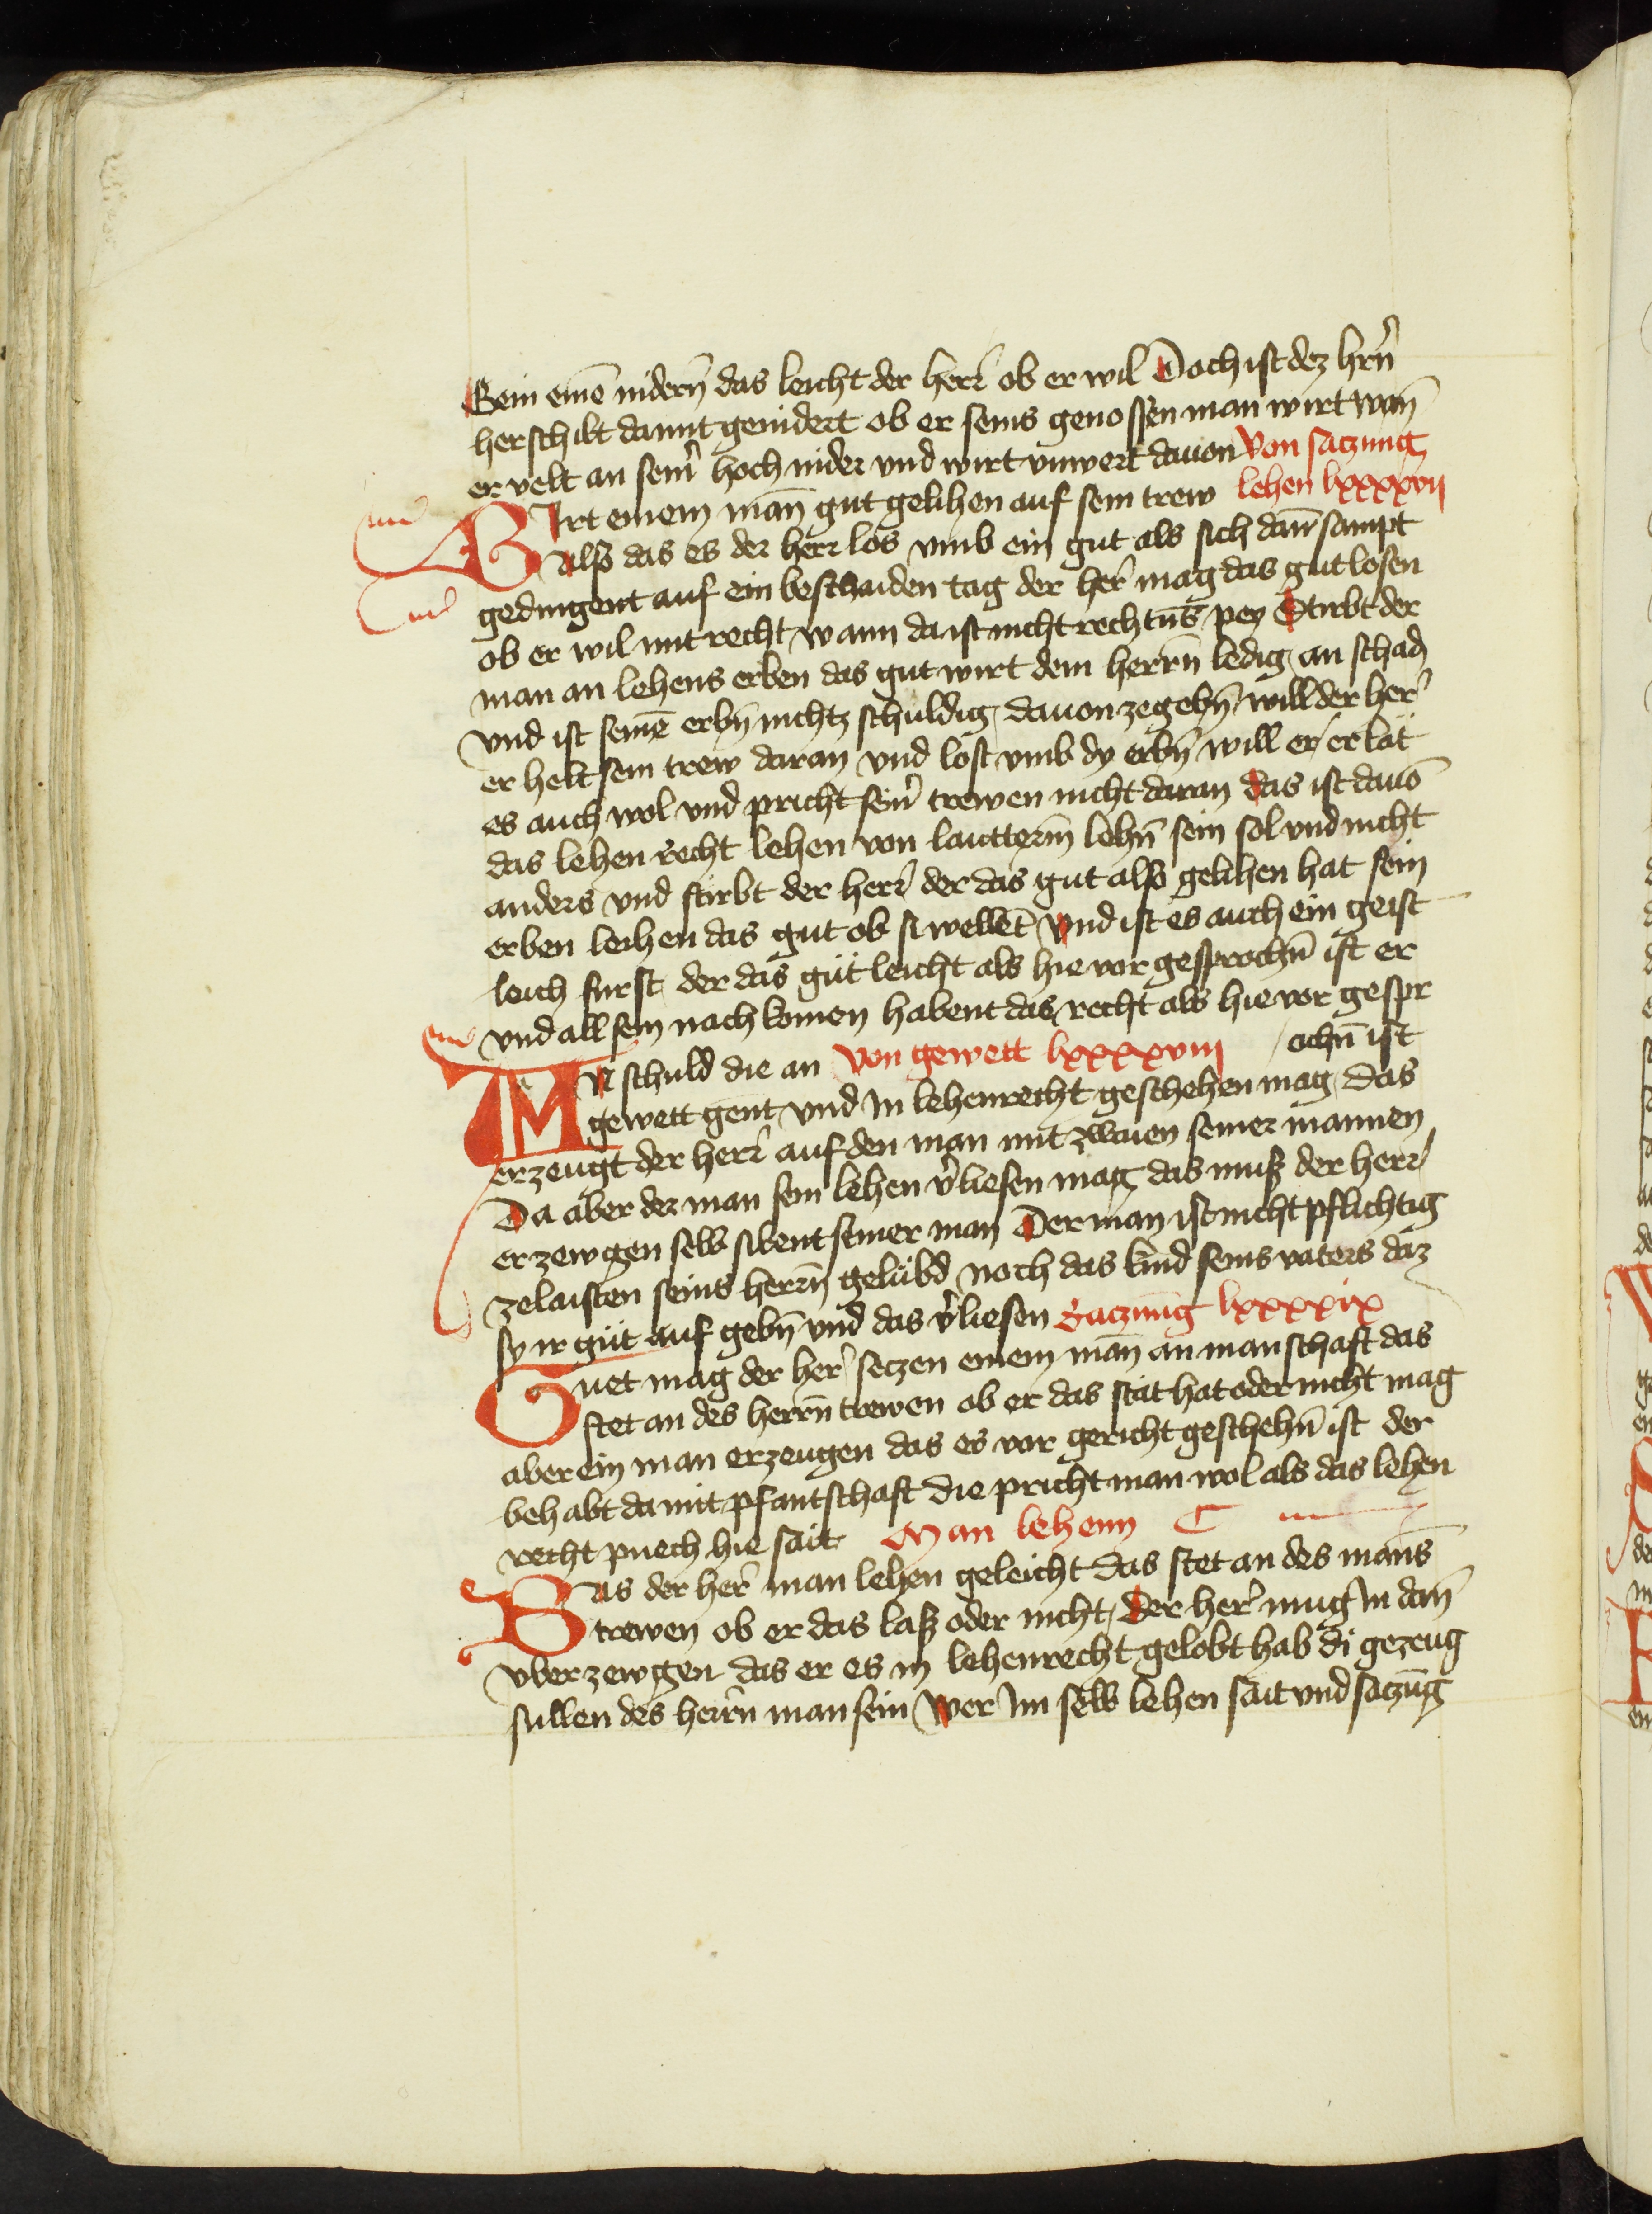 Sein einē nidern̄ das leicht der herr̄ ob er wil Doch ist dez hrn̄
herschilt damit genidert ob er seins genossen man wirt wan̄
er velt an seinr̄ hoch nider vnd wirt vnwert dauon Von saczung
Wirt einem man̄ gut gelihen auf sein trew lehen lxxxxvij
also das es der herr los vmb ein gut als sich dan̄ sampt
gedingent auf ein beschaiden tag der her̄ mag das gut losen
ob er wil mit recht wann da ist nicht rechtūs pey Stirbt der
man an lehens erben das gut wirt dem herrn̄ ledig an schadn̄
vnd ist seinē erbn̄ nichtz schuldig dauon zegebn̄ will der her̄
er helt sein trew daran vnd lost vmb dy erbn̄ will er er lät
es auch wol vnd pricht seinr̄ trewen nicht daran das ist dauō
das lehen recht lehen von lautterm̄ lehn̄ sein sol vnd nicht
anders vnd stirbt der herr̄ der das gut also gelihen hat sein
erben leihen das gut ob si wellēt Vnd ist es auch ein geist
leich furst der das gut leicht als hie vor gesprochn̄ ist er
vnd all sein nachkomen habent das recht als hie vor gespr
VM schuld die an Von gewett lxxxxviij ochn̄ ist
gewett gent vnd In lehenrecht geschehen mag das
erzeugt der herr̄ auf den man mit zwaien seiner mannen
Da aber der man sein lehen v̄liesen mag das muß der herr
erzewgen selb sibent seiner man Der man ist nicht pflichtig
zelaisten seins herrn̄ gelübd noch das kind seins vaters daz
sy ir güt auf gebn̄ vnd das v̄liesen Saczung lxxxxix
Guet mag der her̄ seczen einem man̄ an manschaft das
stet an des herrn̄ trewen ob er das stät hat oder nicht mag
aber ein man erzeugen das es vor gericht geschehn̄ ist der
behabt damit pfantschaft die pricht man wol als das lehen
recht puech hie sait Man lehenn C
Was der her̄ man lehen geleicht das stet an des mans̄
trewen ob er das laß oder nicht der her̄ mug In dan̄
vber zewgen das er es in lehenrecht gelobt hab di gezeug
sullen des herrn̄ man sein Wer Im selb lehen sait vnd saczūg